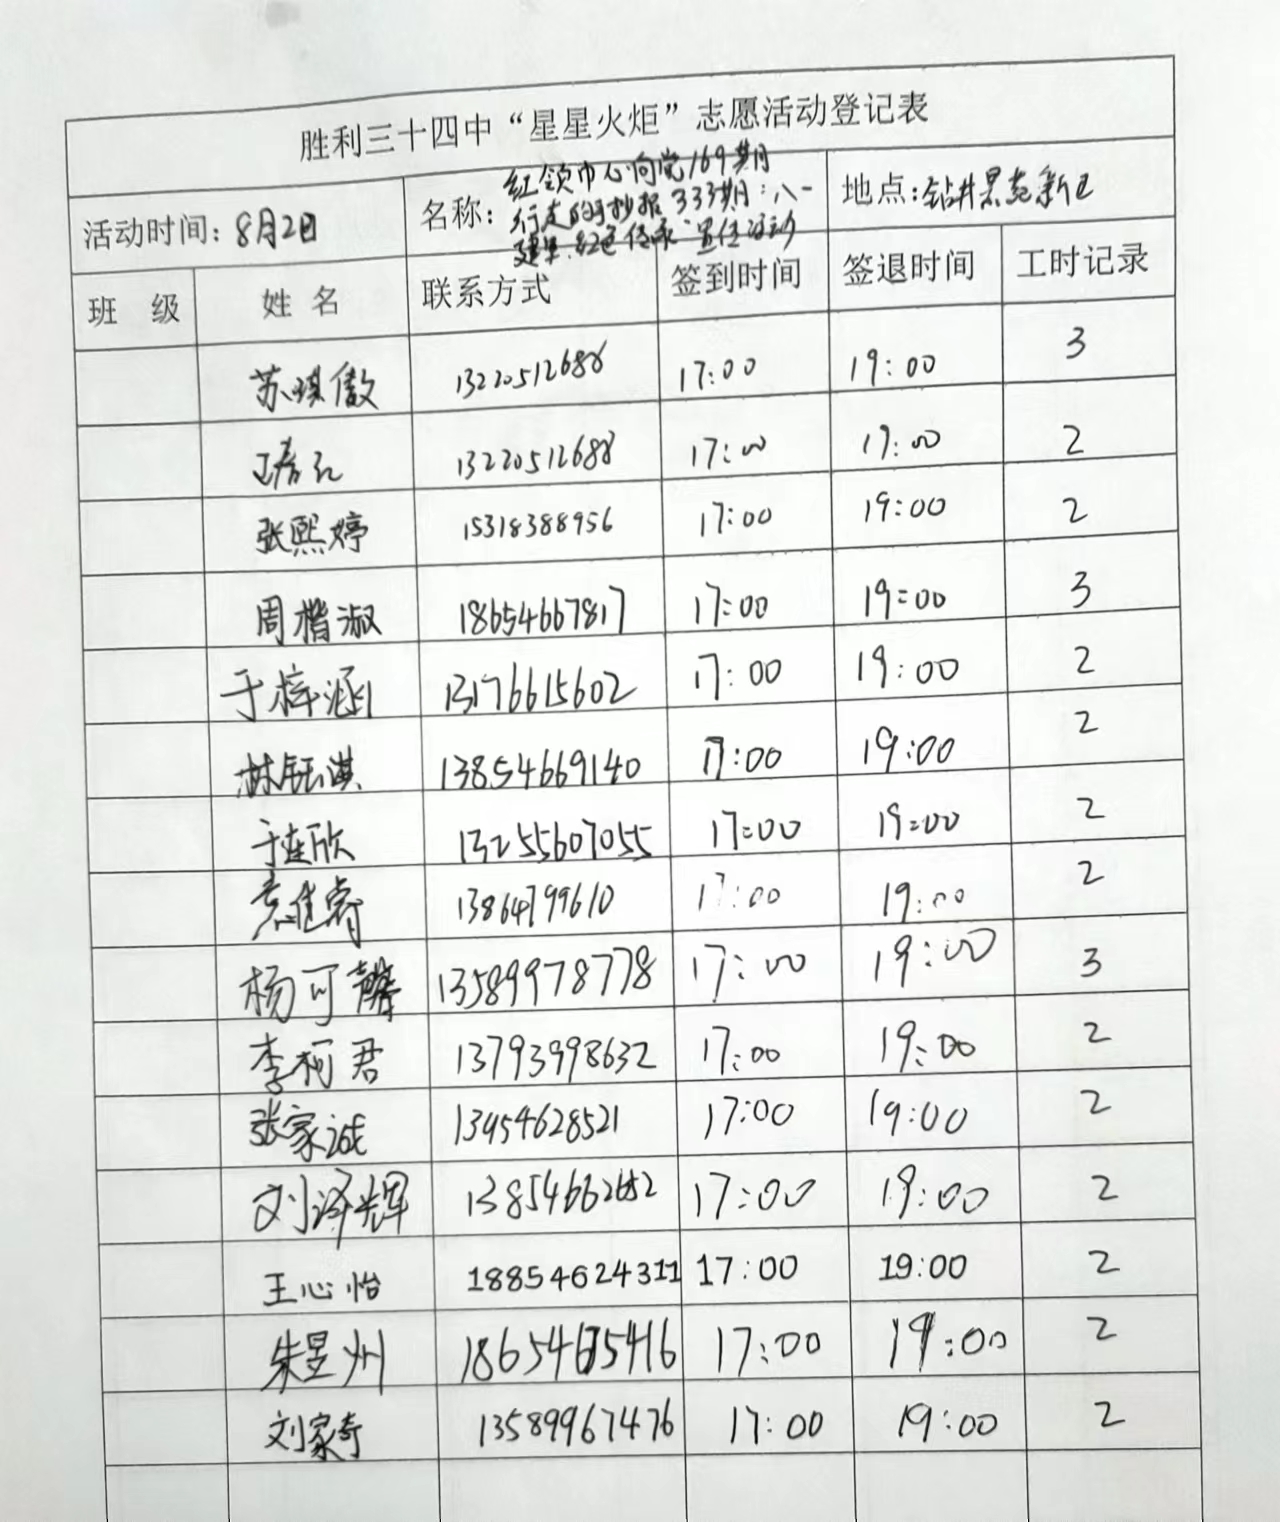 胜利三十四中“星星火炬”志愿活动登记表
活动时间：8月2日 名称：红领巾心向党169期
行走的手抄报333期：八一
建军·红色传承”宣传活动 地点：钻井景苑新区
班 级 姓 名 联系方式 签到时间 签退时间 工时记录
苏琪傲 13220512688 17:00 19:00 3
13220512688 17:00 19:00 2
张熙婷 15318388956 17:00 19:00 2
周楷淑 18654667817 17:00 19:00 3
于梓涵 13176615602 17:00 19:00 2
林钰淇 13854669140 17:00 19:00 2
于连欣 13255607055 17:00 19:00 2
袁佳睿 13864799610 17:00 19:00 2
杨可馨 13589978778 17:00 19:00 3
李柯君 13793998632 17:00 19:00 2
张家诚 13954628521 17:00 19:00 2
刘泽辉 13854662652 17:00 19:00 2
王心怡 18854624311 17:00 19:00 2
朱昱州 18654675416 17:00 19:00 2
刘家奇 13589967476 17:00 19:00 2